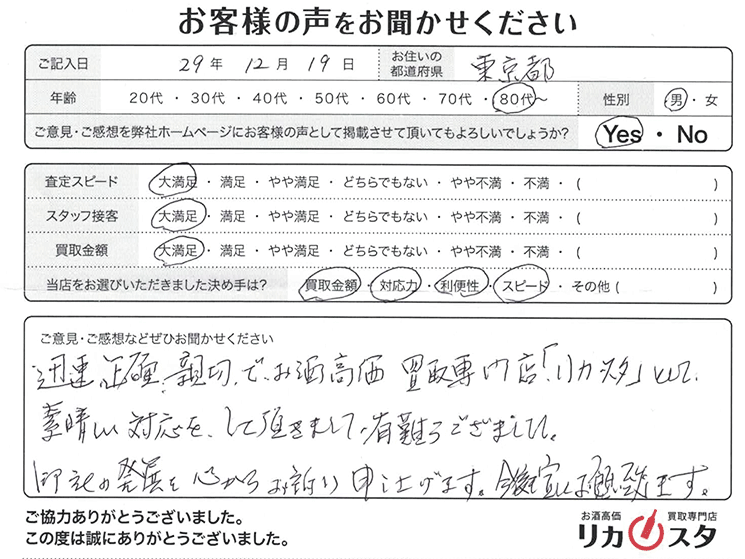 お客様の声をお聞かせください
ご記入日 29年 12月 19日 お住いの都道府県 東京都
年齢 20代・30代・40代・50代・60代・70代・80代～ 性別 男・女
ご意見・ご感想を弊社ホームページにお客様の声として掲載させて頂いてもよろしいでしょうか? Yes・No
査定スピード 大満足・満足・やや満足・どちらでもない・やや不満・不満・( )
スタッフ接客 大満足・満足・やや満足・どちらでもない・やや不満・不満・( )
買取金額 大満足・満足・やや満足・どちらでもない・やや不満・不満・( )
当店をお選びいただきました決め手は? 買取金額・対応力・利便性・スピード・その他( )
ご意見・ご感想などぜひお聞かせください
迅速、正確、親切、で、お酒高価 買取専門店「リカスタ」として、
素晴しい対応を、して頂きまして、有難うございました。
御社の発展を心からお祈り申上げます。今後宜しくお願い致します。
ご協力ありがとうございました。
この度は誠にありがとうございました。
お酒高価 買取専門店
リカスタ